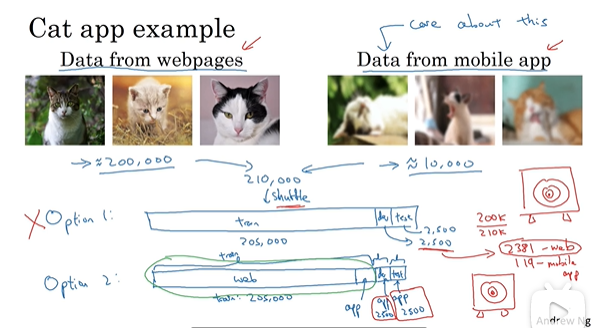 Cat app example
care about this
Data from webpages
Data from mobile app
→ ≈200,000
→ ≈ 10,000
210,000
shuttle
X Option 1:
train
dev
test
205,000
2,500
2,500
200k
210k
2381 - web
119 - mobile
app
train
Option 2:
web
app
dev
test
train: 205,000
app
app
2500
app
2500
Andrew Ng